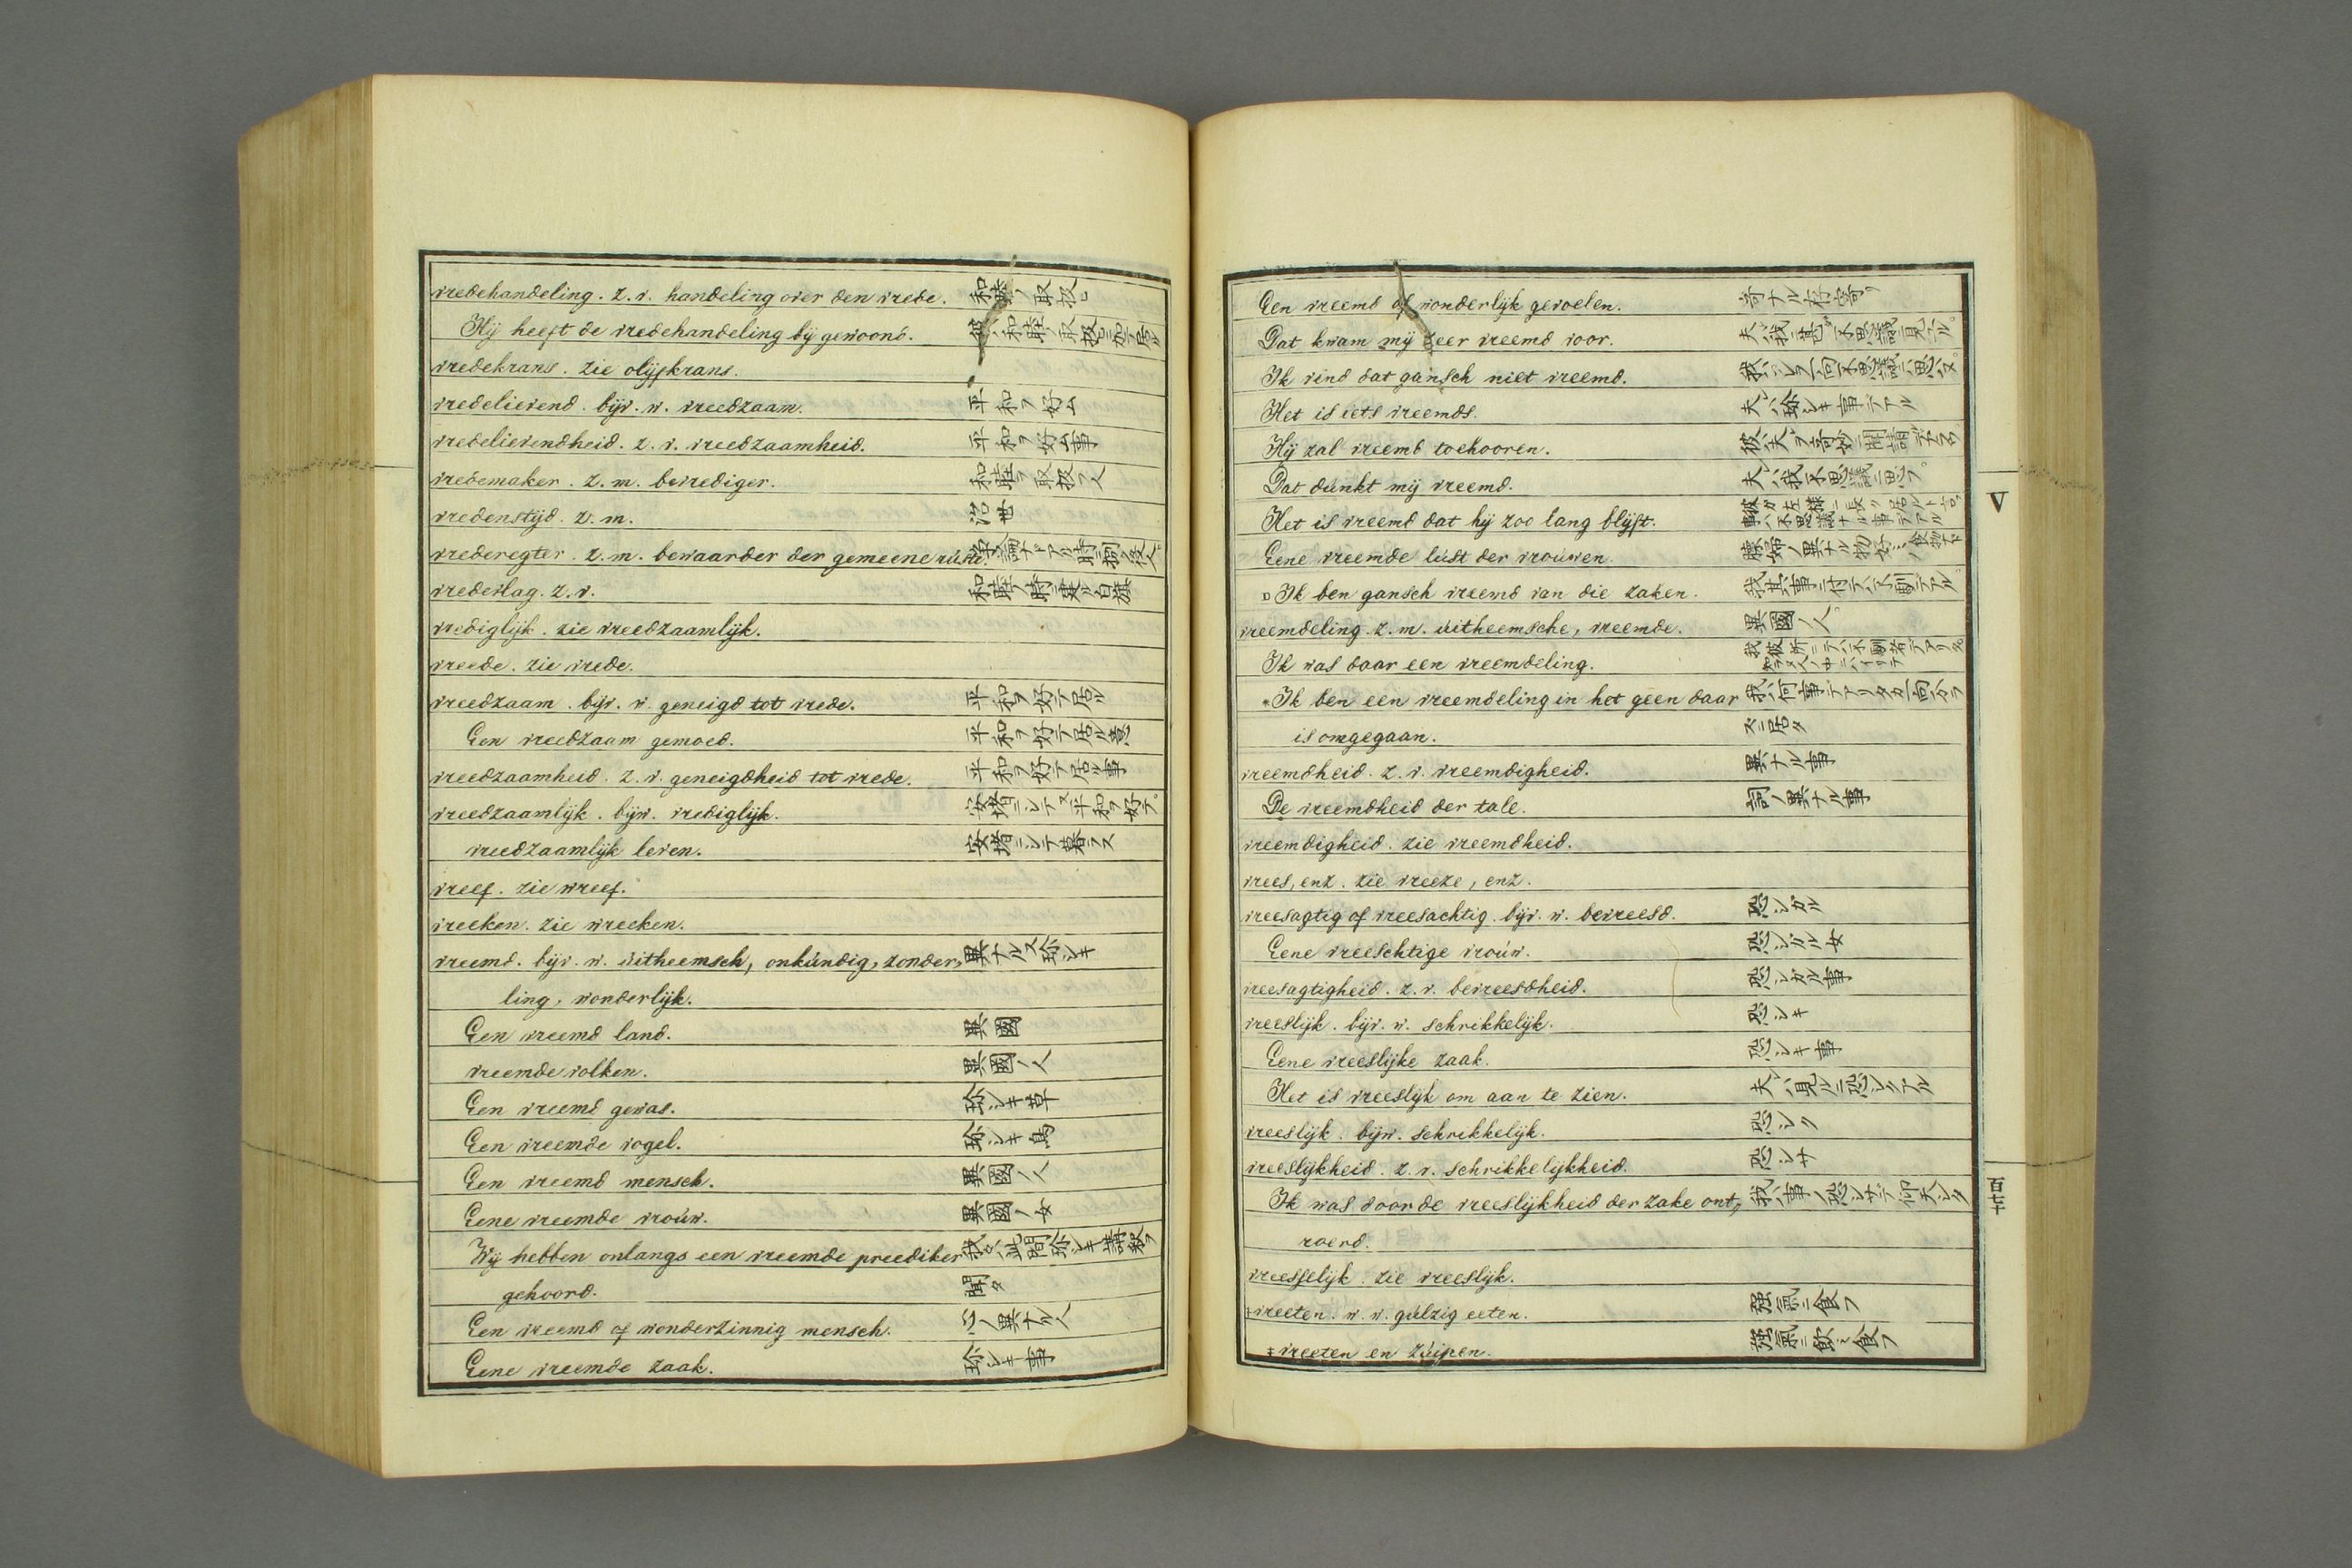 vredehandeling. z. v. handeling over den vrede. 和睦ノ取扱ヒ
Hij heeft de vredehandeling bij gewoond.
vredekrans. zie olijfkrans.
vredelievend. bijv. w. vreedzaam. 平和ヲ好ム
vredelievendheid. z. v. vreedzaamheid. 平和ヲ好ム事
vredemaker. z. m. bevrediger. 和睦ヲ取扱フ人
vredenstijd. z. m. 治世
vrederegter. z. m. bewaarder der gemeene rúst.
vredevlag. z. v. 和睦ノ時ニ建ル白旗
vrediglijk. zie vreedzaamlijk.
vreede. zie vrede.
vreedzaam. bijv. w. geneigd tot vrede. 平和ヲ好テ居ル
Een vreedzaam gemoed. 平和ヲ好テ居ル意
vreedzaamheid. z. v. geneigdheid tot vrede. 平和ヲ好テ居ル事
vreedzaamlijk. bijw. vrediglijk. 安堵ニシテ又平和ヲ好テ。
vreedzaamlijk leven. 安堵ニシテ暮ス
vreef. zie wreef.
vreeken. zie wreeken.
vreemd. bijv. w. úitheemsch, onkúndig, zonder, 異ナル又珍シキ
ling, wonderlijk.
Een vreemd land. 異國
vreemde volken. 異國ノ人
Een vreemd gewas. 珍シキ草
Een vreemde vogel. 珍シキ鳥
Een vreemd mensch. 異國ノ人
Eene vreemde vroúw. 異國ノ女
Wij hebben onlangs een vreemde preediker 我々ハ此間珍シキ講釈ヲ
gehoord. 聞タ
Een vreemd of wonderzinnig mensch. 心ノ異ナル人
Eene vreemde zaak. 珍シキ事
Een vreemd of wonderlijk gevoelen.
Dat kwam mij zeer vreemd voor. 夫ハ我ニ甚タ不思議ニ見ヘル。
Ik vind dat gansch niet vreemd.
Het is iets vreemds. 夫ハ珍シキ事デアル
Hij zal vreemd toehooren.
Dat dúnkt mij vreemd. 夫ハ我ニ不思議ニ思フ。
Het is vreemd dat hij zoo lang blijft.
Eene vreemde lúst der vroúwen.
Ik ben gansch vreemd van die zaken.
vreemdeling. z. m. úitheemsche, vreemde. 異國ノ人。
Ik was daar een vreemdeling.
Ik ben een vreemdeling in het geen daar 我ハ何事デアリタカ一向分ラ
is omgegaan. ズニ居タ
vreemdheid. z. v. vreemdigheid. 異ナル事
De vreemdheid der tale. 詞ノ異ナル事
vreemdigheid. zie vreemdheid.
vrees, enz. zie vreeze, enz.
vreesagtig of vreesachtig. bijv. w. bevreesd. 恐シガル
Eene vreeschtige vroúw. 恐シガル女
vreesagtigheid. z. v. bevreesdheid. 恐シガル事
vreeslijk. bijv. w. schrikkelijk. 恐シキ
Eene vreeslijke zaak. 恐シキ事
Het is vreeslijk om aan te zien. 夫ハ見ルニ恐シクアル
vreeslijk. bijw. schrikkelijk. 恐シク
vreeslijkheid. z. v. schrikkelijkheid. 恐シサ
Ik was door de vreeslijkheid der zake ont, 我ハ事ノ恐シサデ仰天シタ
roerd.
vreesselijk. zie vreeslijk.
vreeten. w. w. gúlzig eeten. 强氣ニ食フ
vreeten en zúipen. 强氣ニ飲ミ食フ
V
百七十